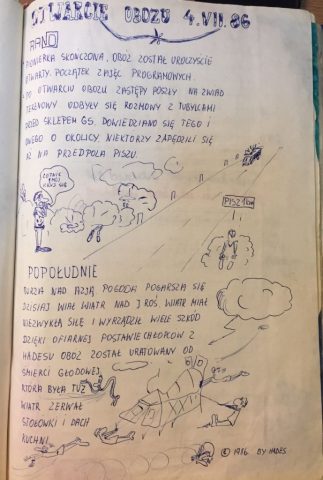 OTWARCIE OBOZU 4.VII.86
RANO
PIONIERKA SKOŃCZONA, OBÓZ ZOSTAŁ UROCZYŚCIE
OTWARTY. POCZĄTEK ZAJĘĆ PROGRAMOWYCH.
PO OTWARCIU OBOZU ZASTĘPY POSZŁY NA ZWIAD
TERENOWY ODBYŁY SIĘ ROZMOWY Z TUBYLCAMI
PRZED SKLEPEM GS. DOWIEDZIANO SIĘ TEGO I
OWEGO O OKOLICY, NIEKTÓRZY ZAPĘDZILI SIĘ
AŻ NA PRZEDPOLA PISZU.
PISZ
POPOŁUDNIE
BURZA NAD AZJĄ POGODA POGARSZA SIĘ
DZISIAJ WIAŁ WIATR NAD J ROŚ WIATR MIAŁ
NIEZWYKŁĄ SIŁĘ I WYRZĄDZIŁ WIELE SZKÓD
DZIĘKI OFIARNEJ POSTAWIE CHŁOPCÓW Z
HADESU OBÓZ ZOSTAŁ URATOWANY OD
ŚMIERCI GŁODOWEJ
KTÓRA BYŁA TUŻ
WIATR ZERWAŁ
STOŁÓWKI I DACH
KUCHNI
© 1986 BY HADES